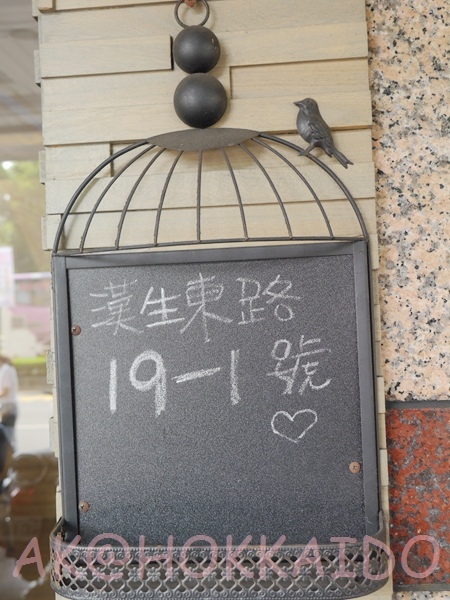 漢生東路
19-1號
♡
AKOHOKKAIDO